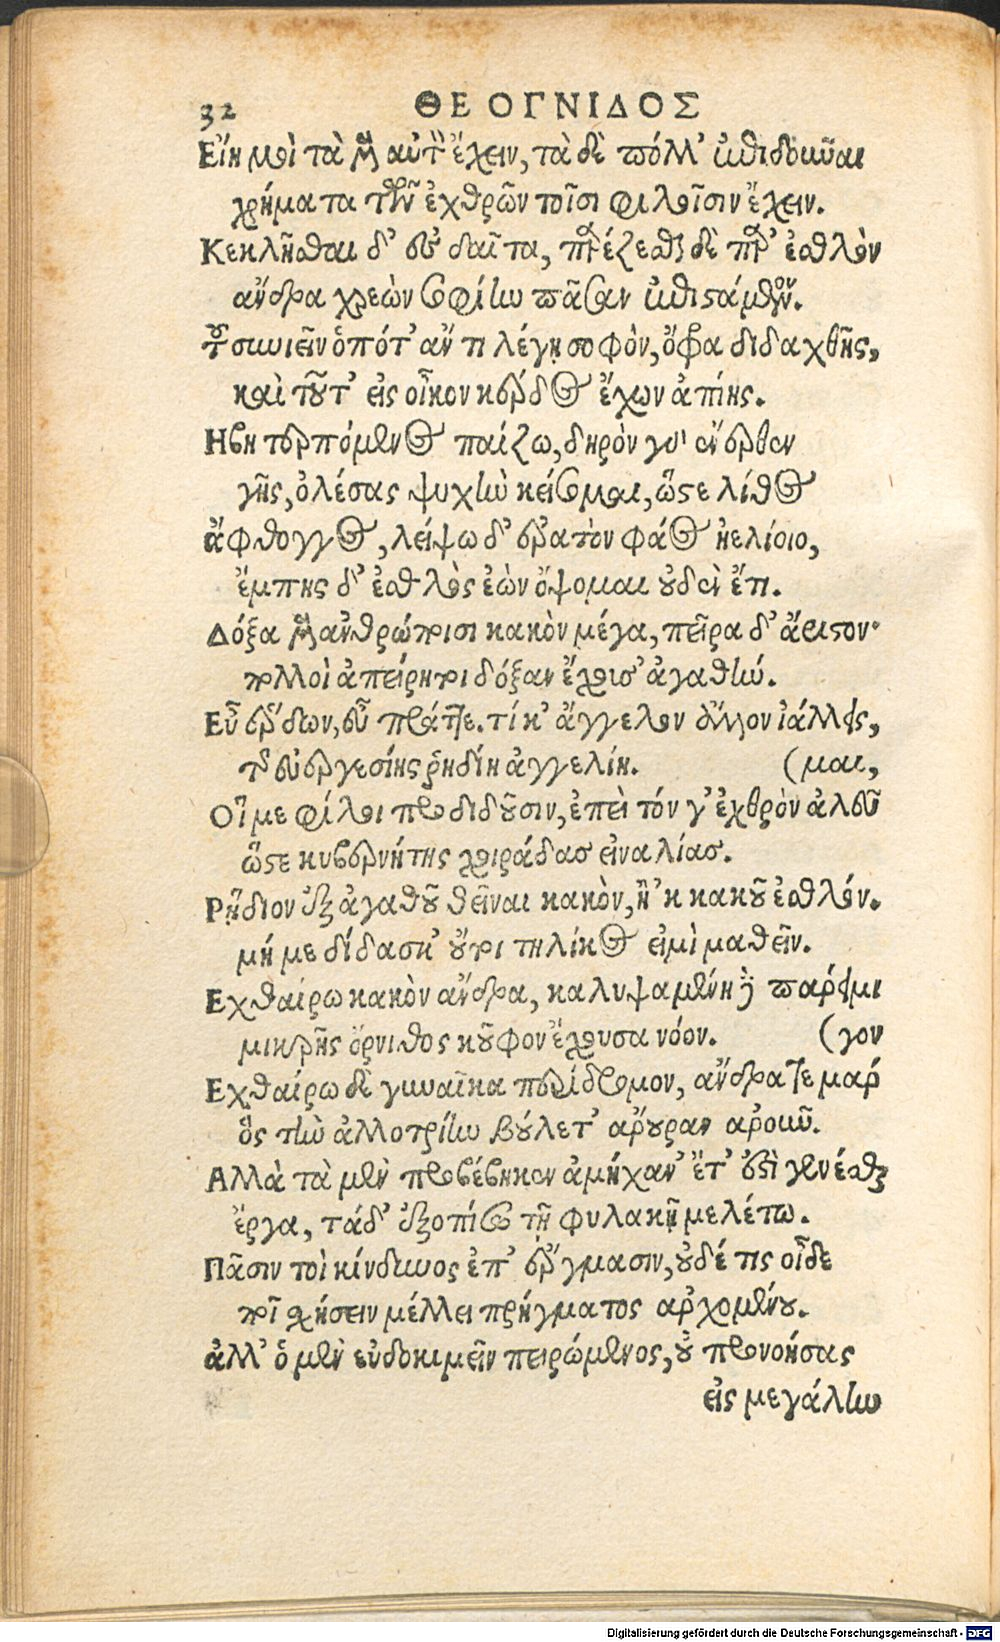 32 ΘΕΟΓΝΙΔΟΣ
Εἴη μοὶ τὰ μὲν αὐτὸν ἔχειν, τὰ δὲ πόλλ' ἐπιδοῦναι
χρήματα τῶν ἐχθρῶν τοῖσι φίλοισιν ἔχειν.
Κεκλῆσθαι δ' εὖ δαῖτα, παρέζεσθαι δὲ παρ' ἐσθλὸν
ἄνδρα χρεὼν σοφίην πᾶσαν ἐπιστάμενον.
τοῦ συνιεῖν ὁπότ' ἄν τι λέγῃ σοφὸν, ὄφρα διδαχθῇς,
καὶ τοῦτ' εἰς οἶκον κέρδος ἔχων ἀπίῃς.
Ηβῃ τερπόμενος παίζω, δηρὸν γὰρ ἔνερθεν
γῆς, ὀλέσας ψυχὴν κείσομαι, ὥστε λίθος
ἄφθογγος, λείψω δ' ἐρατὸν φάος ἠελίοιο,
ἔμπης δ' ἐσθλὸς ἐὼν ὄψομαι οὐδὲν ἔτι.
Δόξα μὲν ἀνθρώποισι κακὸν μέγα, πεῖρα δ' ἄριστον·
πολλοὶ ἀπείρητοι δόξαν ἔχουσ' ἀγαθήν.
Εὖ ἔρδων, εὖ πράττε. τί κ' ἄγγελον ἄλλον ἰάλλῃς,
τῆς εὐεργεσίης ῥηιδίη ἀγγελίη. (μαι,
Οἵ με φίλοι προδιδοῦσιν, ἐπεὶ τόν γ' ἐχθρὸν ἀλεῦ
ὥστε κυβερνήτης χοιράδας εἰναλίας.
Ρῄδιον ἐξ ἀγαθοῦ θεῖναι κακὸν, ἢ 'κ κακοῦ ἐσθλόν.
μή με δίδασκ' οὔτοι τηλίκος εἰμὶ μαθεῖν.
Εχθαίρω κακὸν ἄνδρα, καλυψαμένη δὲ πάρειμι
μικρῆς ὄρνιθος κοῦφον ἔχουσα νόον. (γον
Εχθαίρω δὲ γυναῖκα περίδρομον, ἄνδρα τε μάρ
ὃς τὴν ἀλλοτρίην βούλετ' ἄρουραν ἀροῦν.
Αλλὰ τὰ μὲν προβέβηκεν ἀμήχαν' ἔτ' ἐστὶ γενέσθαι
ἔργα, τάδ' ἐξοπίσω τῇ φυλακῇ μελέτω.
Πᾶσιν τοὶ κίνδυνος ἐπ' ἔργμασιν, οὐδέ τις οἶδε
ποῖ σχήσειν μέλλει πρήγματος ἀρχομένου.
ἀλλ' ὁ μὲν εὐδοκιμεῖν πειρώμενος, οὐ προνοήσας
εἰς μεγάλην
Digitalisierung gefördert durch die Deutsche Forschungsgemeinschaft - DFG